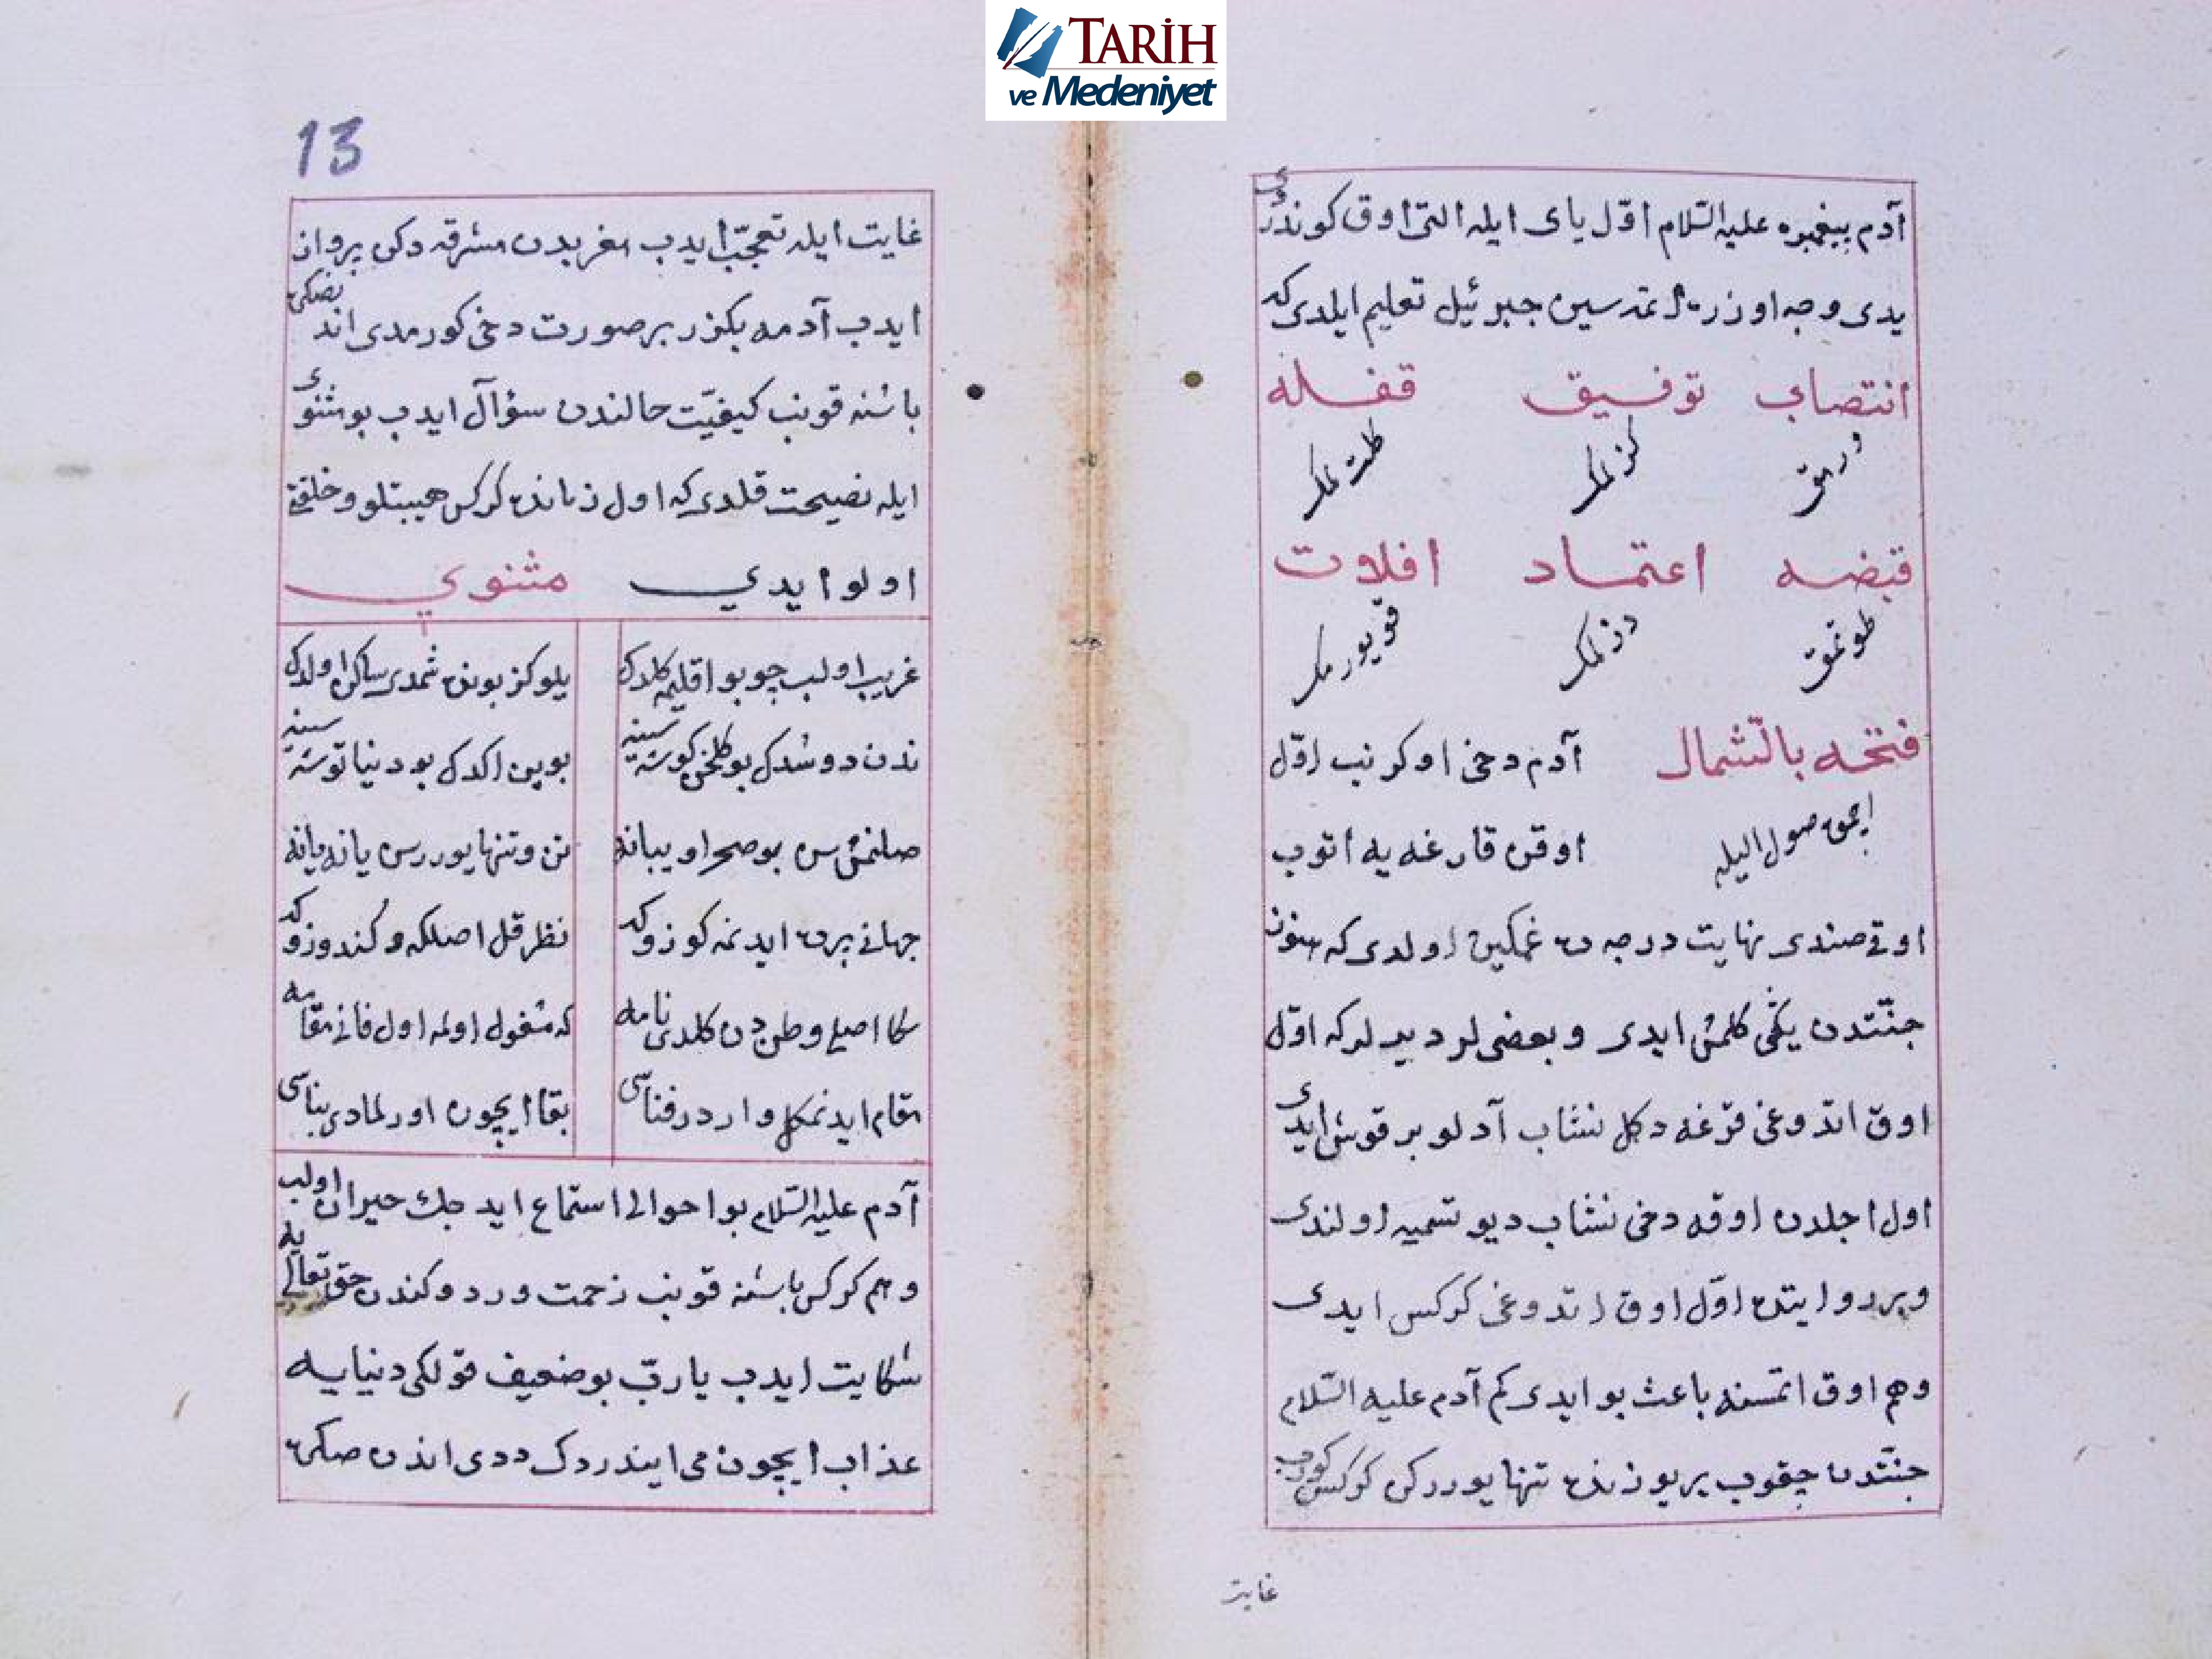 TARİH
ve Medeniyet
آدم پیغمبره علیه السّلام اوّل یای ایله التی اوق کوندردی
یدی وجه اوزره اتمه سین جبرئیل تعلیم ایلدی که
انتصاب توفیق قفله
ورمق کزلمک
قبضه اعتماد افلات
طوتمق دزلمک قویورمک
فتحه بالشّمال آدم دخی اوکرنب اوّل
اچمق صول الیله اوقی قارغه یه اتوب
اوقی صندی نهایت درجه ده غمکین اولدی که هنوز
جنّتدن یکی کلمش ایدی و بعضی لر دیدیلر که اوّل
اوق اتدوغی قرغه دکل نشّاب آدلو بر قوش ایدی
اول اجلدن اوقه دخی نشّاب دیو تسمیه اولندی
و بر روایتده اوّل اوق اتدوغی کرکس ایدی
و هم اوق اتمسنه باعث بو ایدی کم آدم علیه السّلام
جنّتدن چقوب یر یوزنده تنها یوررکن کرکس کورب
غایت
13
غایت ایله تعجّب ایدب مغربدن مشرقه دکین پرواز
ایدب آدمه بکزر بر صورت دخی کورمدی اندن صکره
باشنه قونب کیفیّت حالندن سؤال ایدب بو مثنوی
ایله نصیحت قلدی که اول زمانده کرکس هیبتلو و خلقتی
اولو ایدی مثنوی
غریب اولب چو بو اقلیمه کلدک یلوکز بونده شمدی ساکن اولدک
ندن دوشدک بو کلخن کوشه سینه بوین اکدک بو دنیا توشه سینه
صلنمش سن بو صحرا و بیابانه تن و تنها یوررسن یانه یانه
جهانی پر ایدنمه کوزوکه نظر قل اصلکه و کندوزوکه
سکا اصلی وطندن کلدی نامه که مشغول اولمه اول فانی مقامه
مقام ایدنمکل وار در فناسی بقا ایچون اورلمادی بناسی
آدم علیه السّلام بو احوالی استماع ایدجك حیران اولب
و هم کرکس باشنه قونب زحمت وردوکندن حق تعالی یه
شکایت ایدب یا ربّ بو ضعیف قولکی دنیایه
عذاب ایچون می ایندردک ددی اندن صکره